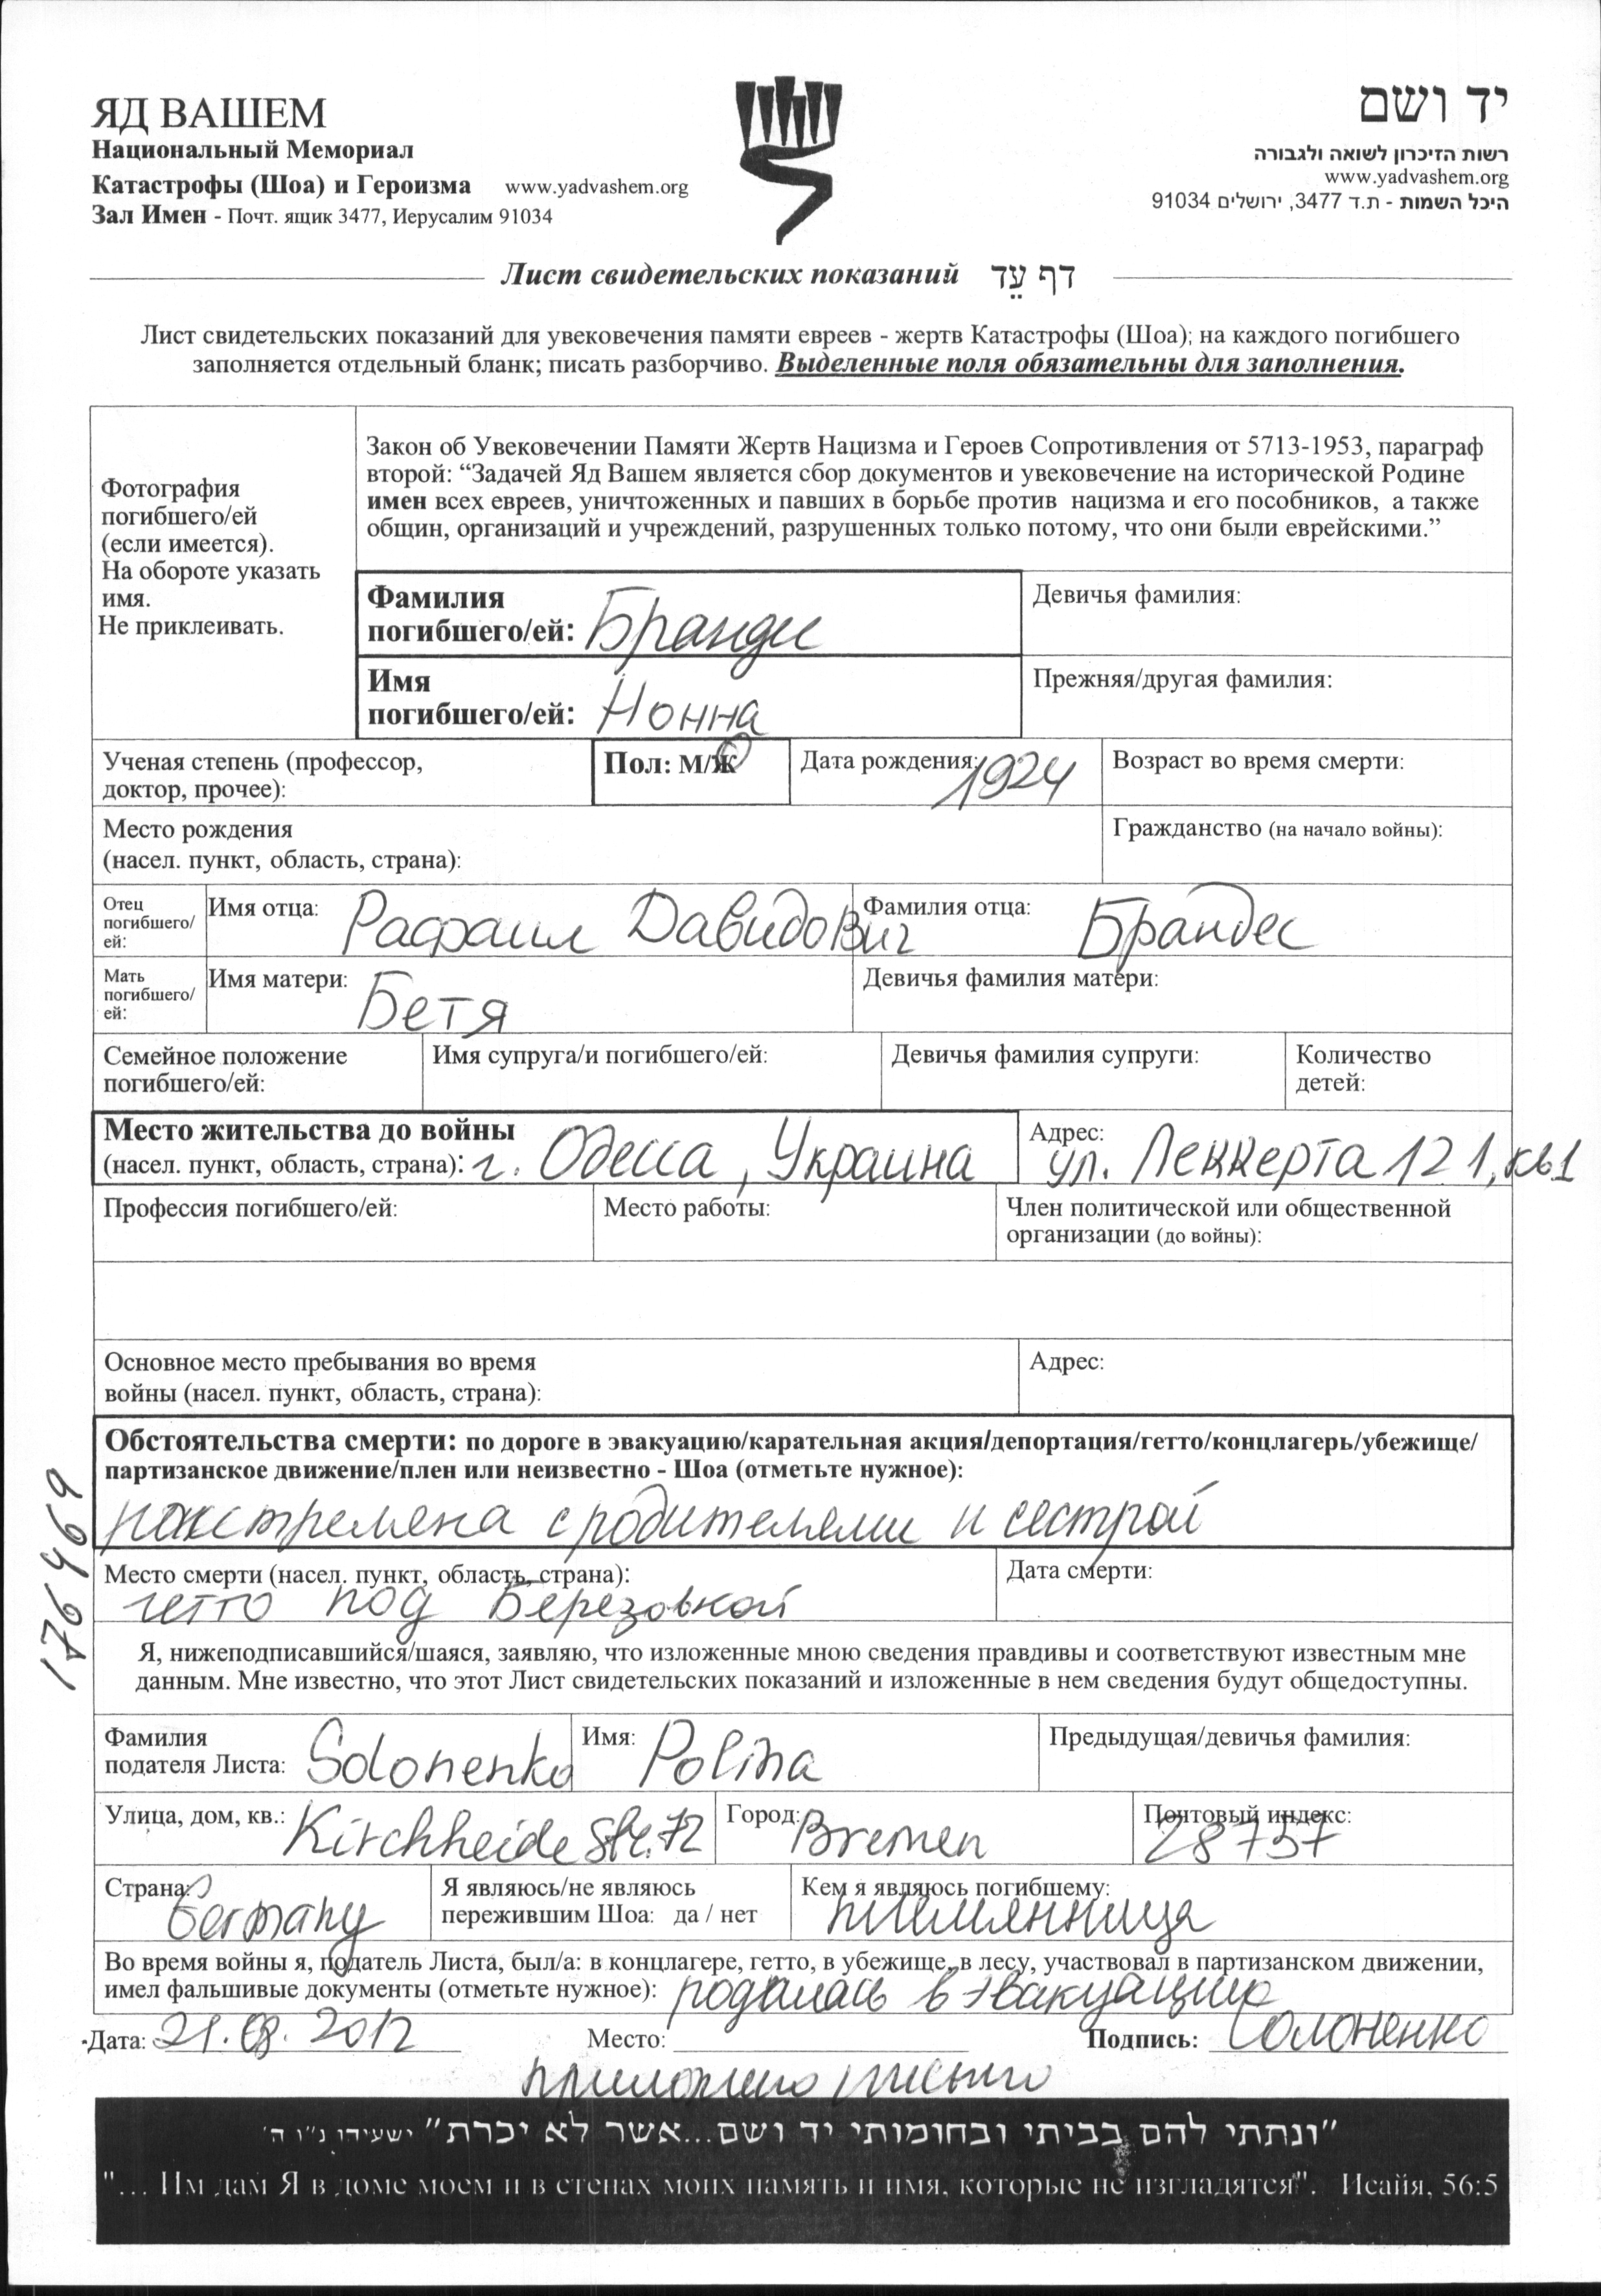 ЯД ВАШЕМ
Национальный Мемориал
Катастрофы (Шоа) и Героизма www.yadvashem.org
Зал Имен - Почт. ящик 3477, Иерусалим 91034
יד ושם
רשות הזיכרון לשואה ולגבורה
www.yadvashem.org
היכל השמות - ת.ד 3477, ירושלים 91034
Лист свидетельских показаний דף עֵד
Лист свидетельских показаний для увековечения памяти евреев - жертв Катастрофы (Шоа); на каждого погибшего
заполняется отдельный бланк; писать разборчиво. Выделенные поля обязательны для заполнения.
Фотография
погибшего/ей
(если имеется).
На обороте указать
имя.
Не приклеивать.
Закон об Увековечении Памяти Жертв Нацизма и Героев Сопротивления от 5713-1953, параграф
второй: “Задачей Яд Вашем является сбор документов и увековечение на исторической Родине
имен всех евреев, уничтоженных и павших в борьбе против нацизма и его пособников, а также
общин, организаций и учреждений, разрушенных только потому, что они были еврейскими.”
Фамилия
погибшего/ей: Брандес
Девичья фамилия:
Имя
погибшего/ей: Нонна
Прежняя/другая фамилия:
Ученая степень (профессор,
доктор, прочее):
Пол: М/Ж
Дата рождения: 1924
Возраст во время смерти:
Место рождения
(насел. пункт, область, страна):
Гражданство (на начало войны):
Отец
погибшего/
ей:
Имя отца: Рафаил Давидович
Фамилия отца: Брандес
Мать
погибшего/
ей:
Имя матери: Бетя
Девичья фамилия матери:
Семейное положение
погибшего/ей:
Имя супруга/и погибшего/ей:
Девичья фамилия супруги:
Количество
детей:
Место жительства до войны
(насел. пункт, область, страна): г. Одесса, Украина
Адрес:
ул. Леккерта 121, кв1
Профессия погибшего/ей:
Место работы:
Член политической или общественной
организации (до войны):
Основное место пребывания во время
войны (насел. пункт, область, страна):
Адрес:
Обстоятельства смерти: по дороге в эвакуацию/карательная акция/депортация/гетто/концлагерь/убежище/
партизанское движение/плен или неизвестно - Шоа (отметьте нужное):
расстреляна с родителями и сестрой
176969
Место смерти (насел. пункт, область, страна):
гетто под Березовкой
Дата смерти:
Я, нижеподписавшийся/шаяся, заявляю, что изложенные мною сведения правдивы и соответствуют известным мне
данным. Мне известно, что этот Лист свидетельских показаний и изложенные в нем сведения будут общедоступны.
Фамилия
подателя Листа: Solonenko
Имя: Polina
Предыдущая/девичья фамилия:
Улица, дом, кв.: Kirchheide Str. 72
Город: Bremen
Почтовый индекс: 28757
Страна: Germany
Я являюсь/не являюсь
пережившим Шоа: да / нет
Кем я являюсь погибшему:
племянница
Во время войны я, податель Листа, был/а: в концлагере, гетто, в убежище, в лесу, участвовал в партизанском движении,
имел фальшивые документы (отметьте нужное): родилась в эвакуации
Дата: 21.08.2012 Место: Подпись: Солоненко
приложено письмо
"ונתתי להם בביתי ובחומותי יד ושם...אשר לא יכרת" ישעיהו נ"ו ה'
"... Им дам Я в доме моем и в стенах моих память и имя, которые не изгладятся". Исайя, 56:5